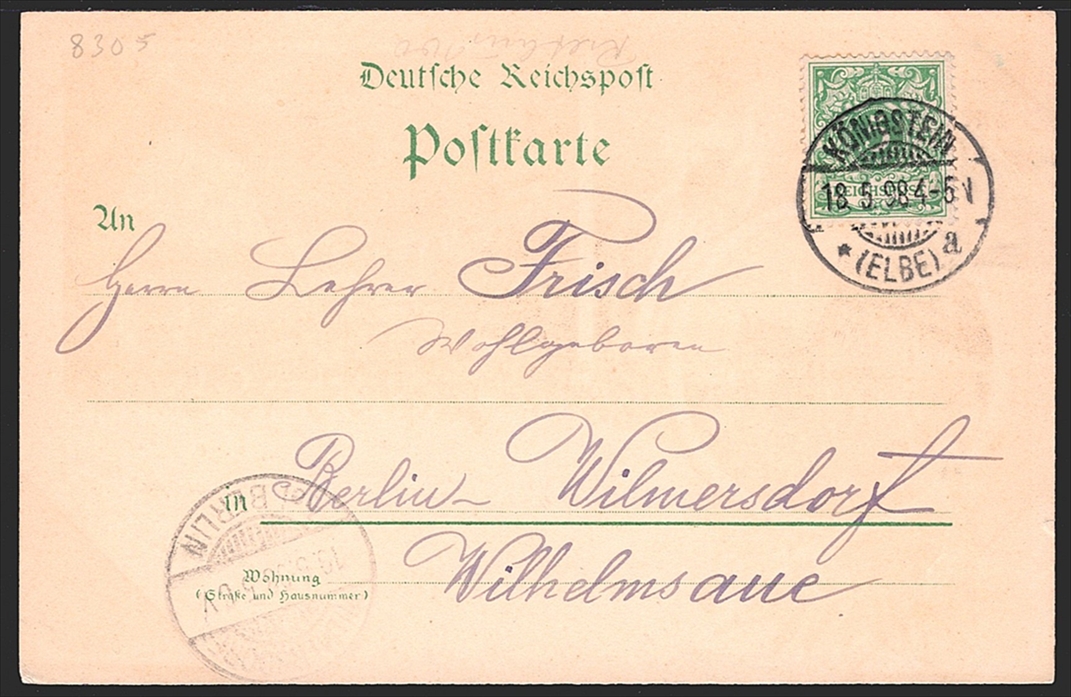 8305
Deutsche Reichspost
Postkarte
KÖNIGSTEIN
18 5 98 4-5 V
* (ELBE) a
REICHSPOST
An
Herrn Lehrer Frisch
Wohlgeboren
in Berlin - Wilmersdorf
BERLIN
Wohnung
(Straße und Hausnummer)
Wilhelmsaue